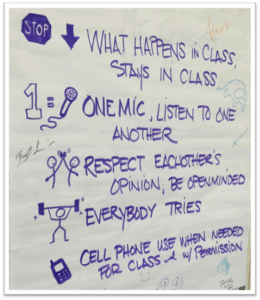 STOP
WHAT HAPPENS IN CLASS,
STAYS IN CLASS
1 =
ONE MIC, LISTEN TO ONE
ANOTHER
RESPECT EACHOTHER'S
OPINION, BE OPENMINDED
EVERYBODY TRIES
CELL PHONE USE WHEN NEEDED
FOR CLASS w/ PERMISSION